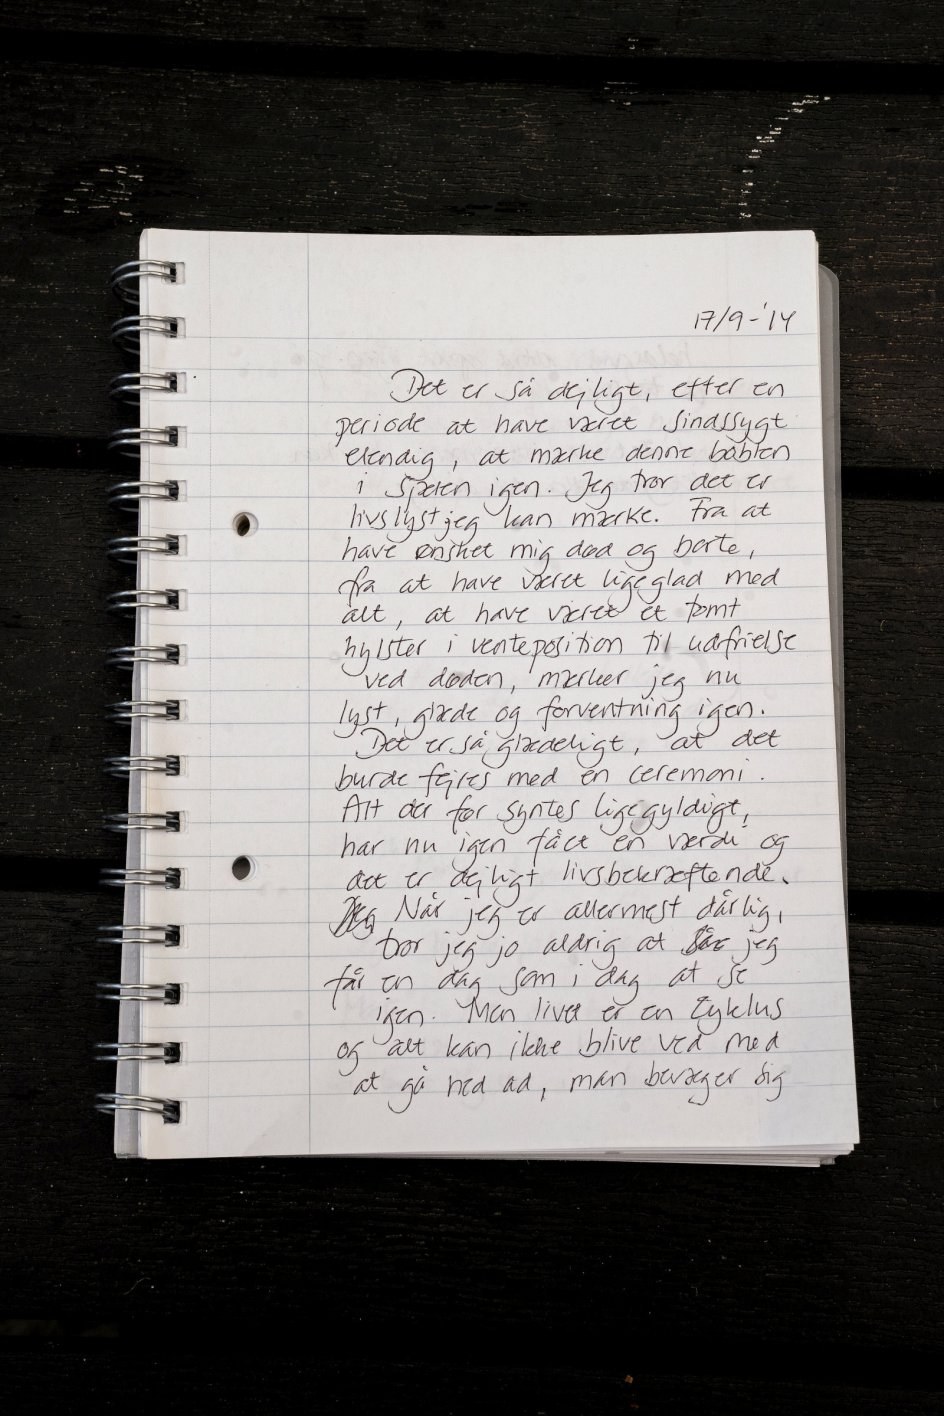 17/9-'14
Det er så dejligt, efter en
periode at have været sindssygt
elendig, at mærke denne boblen
i sjælen igen. Jeg tror det er
livslyst jeg kan mærke. Fra at
have ønsket mig død og borte,
fra at have været ligeglad med
alt, at have været et tomt
hylster i venteposition til udfrielse
ved døden, mærker jeg nu
lyst, glæde og forventning igen.
Det er så glædeligt, at det
burde fejres med en ceremoni.
Alt der før syntes ligegyldigt,
har nu igen fået en værdi og
det er dejligt livsbekræftende.
Jeg Når jeg er allermest dårlig,
tror jeg jo aldrig at jeg
får en dag som i dag at se
igen. Men livet er en cyklus
og alt kan ikke blive ved med
at gå ned ad, man bevæger sig